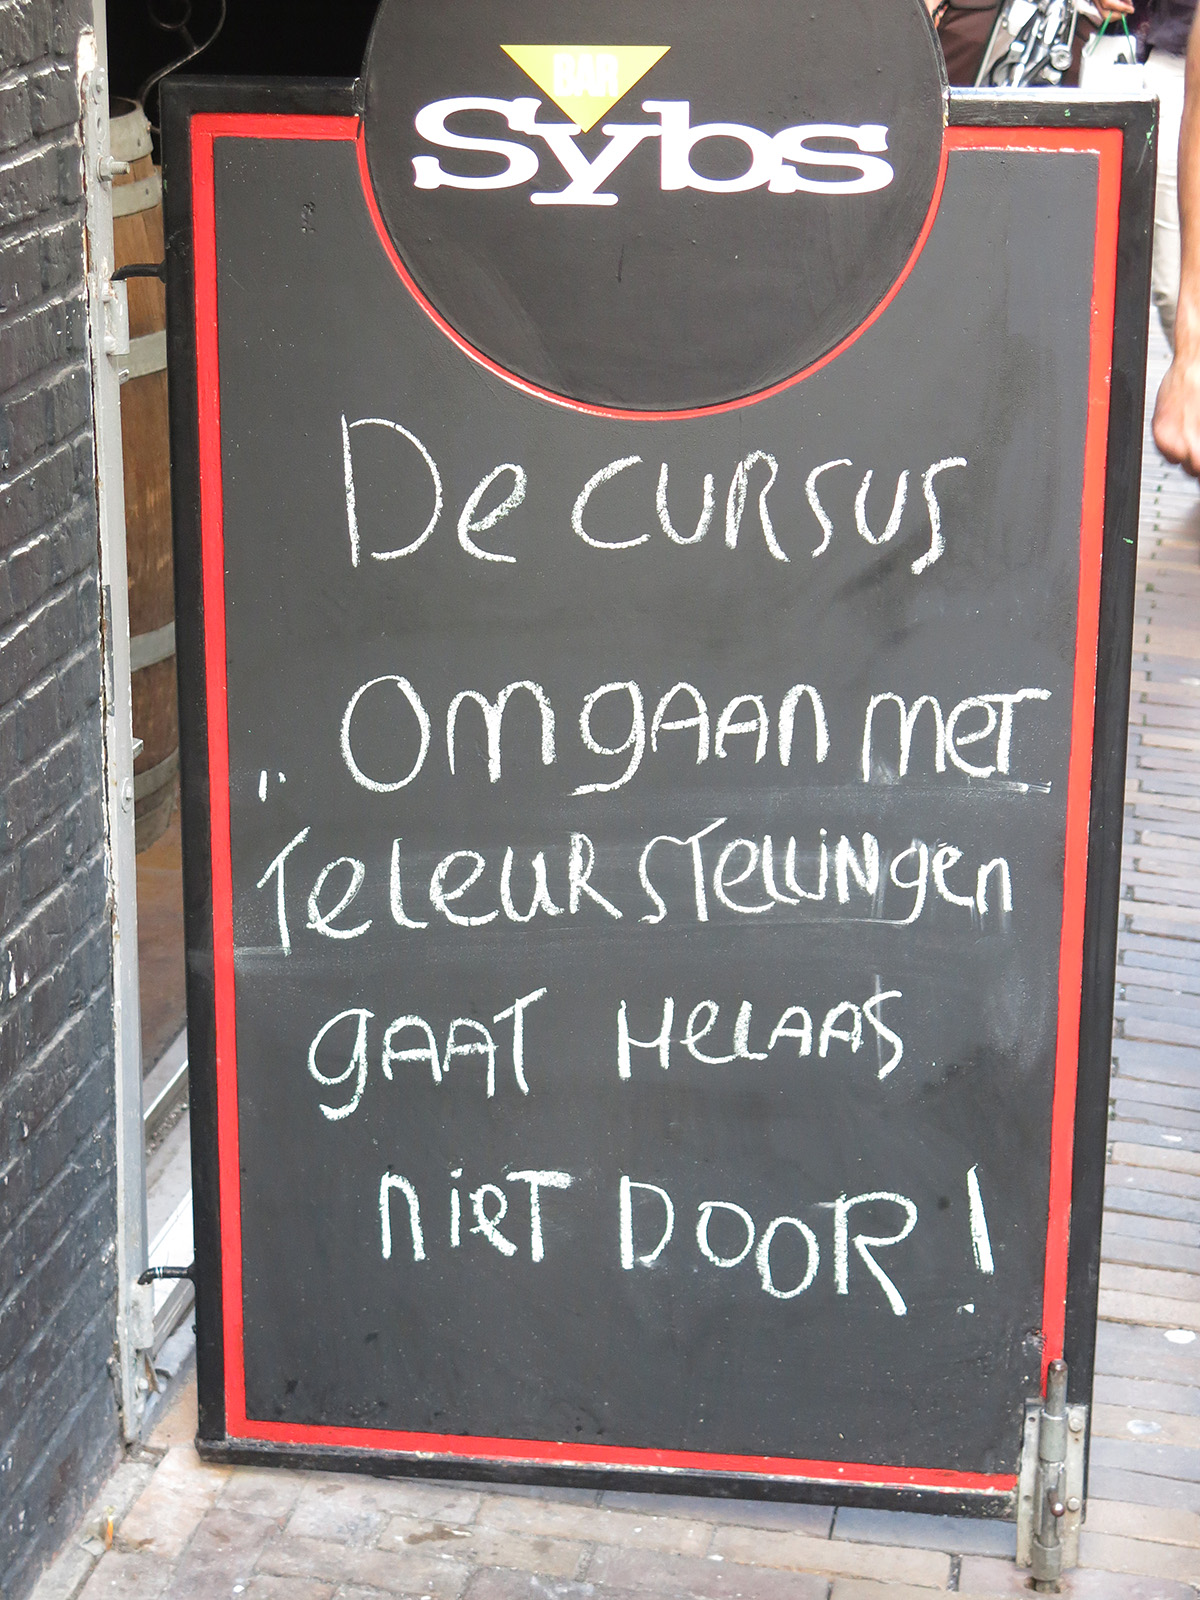 BAR
Sybs
De cursus
„ Omgaan met
Teleurstellingen
gaat Helaas
niet DOOR!